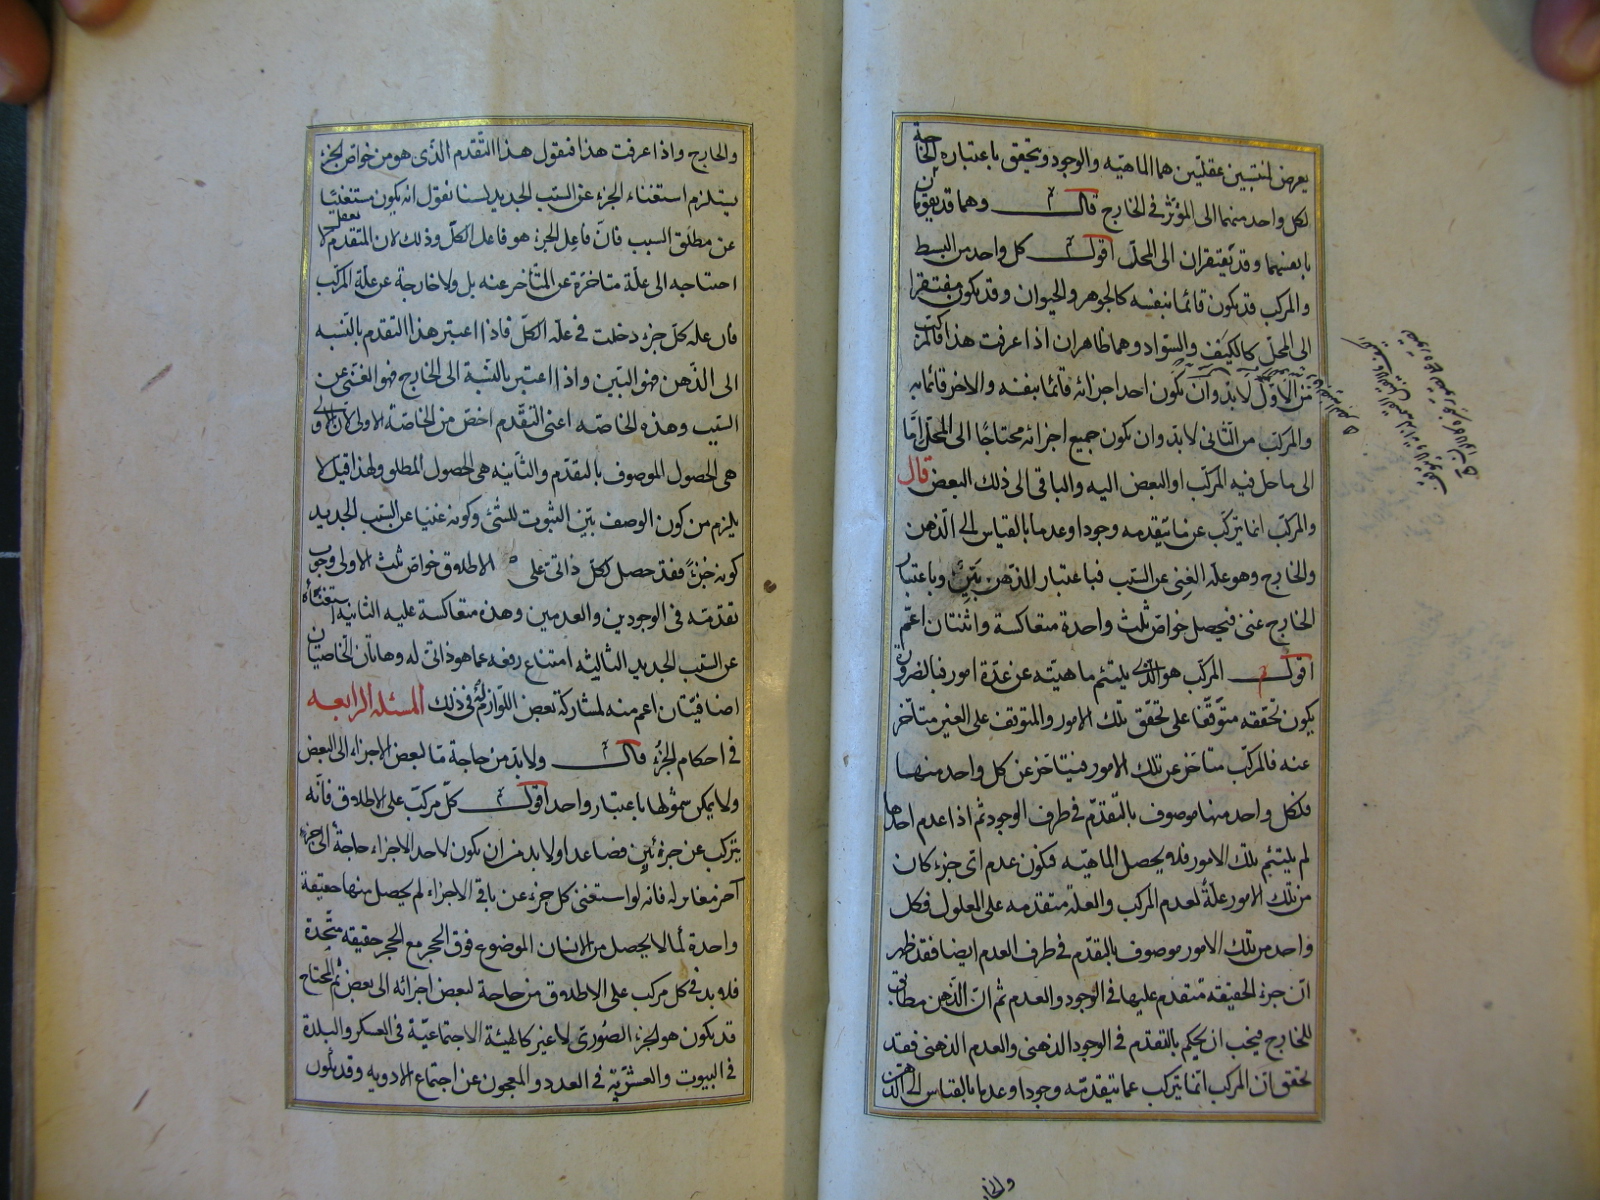 يعرض لنسبتين عقليتين هما الماهيه والوجود ويتحقق باعتباره الحاجة
لكل واحد منهما الى المؤثر في الخارج قال وهما قد يقومان
بانفسهما وقد يفتقران الى المحل اقول كل واحد من البسيط
والمركب قد يكون قائما بنفسه كالجوهر والحيوان وقد يكون مفتقرا
الى المحل كالكيف والسواد وهما ظاهران اذا عرفت هذا فالمركب
من الاول لابد وان يكون احد اجزائه قائما بنفسه والاخر قائما به
والمركب من الثاني لابد وان يكون جميع اجزائه محتاجا الى المحل اما
الى ما حل فيه المركب او البعض اليه والباقي الى ذلك البعض قال
والمركب انما يتركب عما يتقدمه وجودا وعدما بالقياس الى الذهن
والخارج وهو علة الغنى عن السبب فباعتبار الذهن بين وباعتبار
الخارج غنى فيحصل خواص ثلث واحدة متعاكسة واثنتان اعم
اقول المركب هو الذي يلتئم ماهيته عن عدة امور فبالضرورة
يكون تحققه متوقفا على تحقق تلك الامور والمتوقف على الغير متاخر
عنه فالمركب متاخر عن تلك الامور فيتاخر عن كل واحد منها
فكل واحد منها موصوف بالتقدم في طرف الوجود ثم اذا عدم احدها
لم يلتئم تلك الامور فلا يحصل الماهيه فكون عدم اى جزء كان
من تلك الامور علة لعدم المركب والعلة متقدمه على المعلول فكل
واحد من تلك الامور موصوف بالتقدم في طرف العدم ايضا فقد ظهر
ان جزء الحقيقه متقدم عليها في الوجود والعدم ثم ان الذهن مطابق
للخارج فيجب ان يحكم بالتقدم في الوجود الذهني والعدم الذهني فقد
تحقق ان المركب انما يتركب عما يتقدمه وجودا وعدما بالقياس الى الذهن
والخا
والخارج واذا عرفت هذا فنقول هذا التقدم الذى هو من خواص الجزء
يستلزم استغناء الجزء عن السبب الجديد لسنا نقول انه يكون مستغنيا
عن مطلق السبب فان فاعل الجزء هو فاعل الكل وذلك لان المتقدم لا يعقل
احتياجه الى علة متاخرة عن المتاخر عنه بل ولا خارجة عن علة المركب
فان علة كل جزء دخلت في علة الكل فاذا اعتبر هذا التقدم بالنسبه
الى الذهن فهو البين واذا اعتبر بالنسبة الى الخارج فهو الغنى عن
السبب وهذه الخاصه اعنى التقدم اخص من الخاصة الاولى لان الاولى
هى الحصول الموصوف بالتقدم والثانيه هى الحصول المطلق ولهذا قيل لا
يلزم من كون الوصف بين الثبوت للشئ وكونه غنيا عن السبب الجديد
كونه جزء فقد حصل لكل ذاتى على الاطلاق خواص ثلث الاولى وجوب
تقدمه فى الوجودين والعدمين وهذه متعاكسة عليه الثانيه استغناؤه
عن السبب الجديد الثالثه امتناع رفعه عما هو ذاتى له وهاتان الخاصيتان
اضافيتان اعم منه لمشاركة بعض اللوازم له فى ذلك المسئله الرابعه
فى احكام الجزء قال ولا بد من حاجة ما لبعض الاجزاء الى البعض
ولا يمكن شمولها باعتبار واحد اقول كل مركب على الاطلاق فانه
يتركب عن جزءين فصاعدا ولا بد من ان يكون لاحد الاجزاء حاجة الى جزء
آخر مغاير له فانه لو استغنى كل جزء عن باقى الاجزاء لم يحصل منها حقيقة
واحدة كما لا يحصل من الانسان الموضوع فوق الحجر مع الحجر حقيقه متحدة
فلا بد فى كل مركب على الاطلاق من حاجة لبعض اجزائه الى بعض ثم المحتاج
قد يكون هو الجزء الصورى لا غير كالهيئة الاجتماعية فى العسكر والبلدة
فى البيوت والعشرية فى العدد والمعجون عن اجتماع الادويه وقد يكون